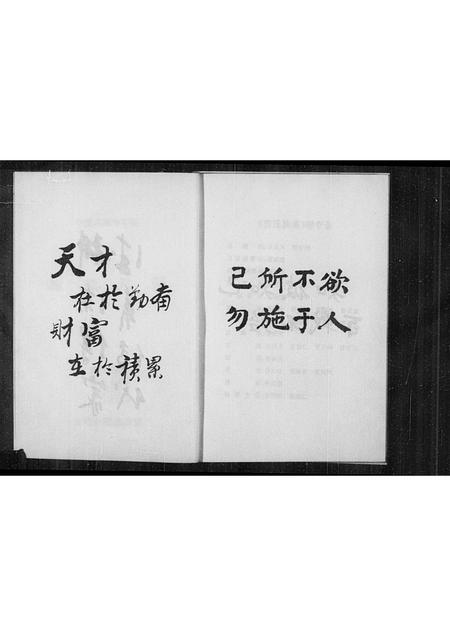 天才
在於勤奋
財富
在於積累
己所不欲
勿施于人